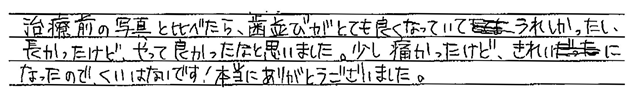 治療前の写真と比べたら、歯並びがとても良くなっていてうれしかったし、
長かったけど、やって良かったなと思いました。少し痛かったけど、きれいに
なったので、くいはないです!本当にありがとうございました。